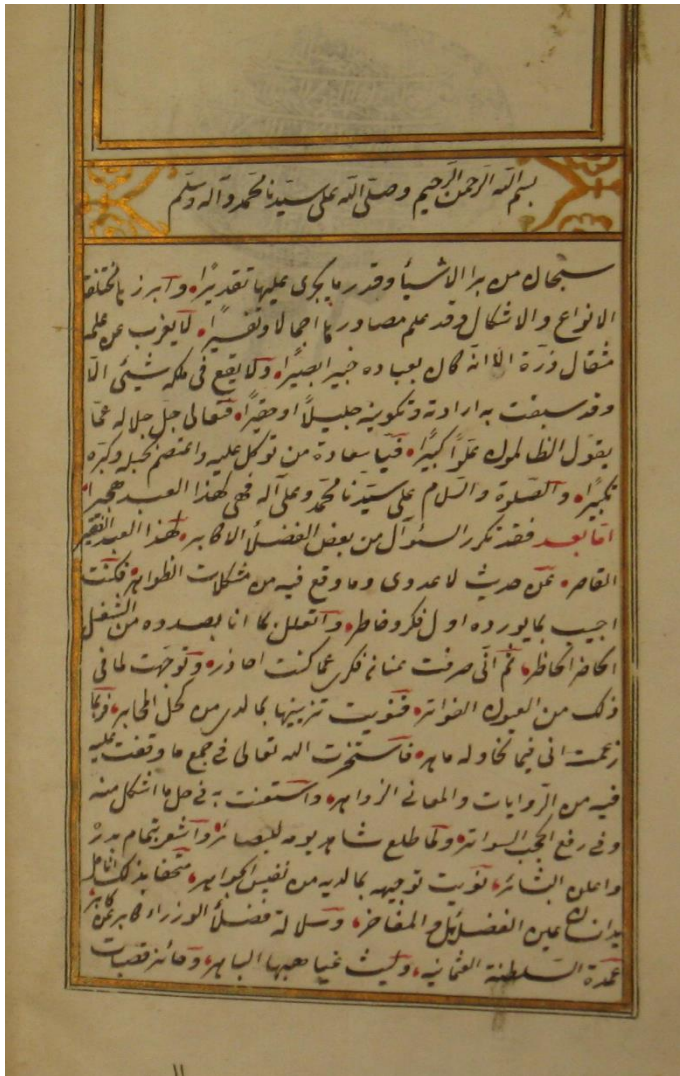 بسم الله الرحمن الرحيم وصلى الله على سيدنا محمد وآله وسلم
سبحان من برا الاشيأ وقدر ما يجرى عليها تقديرًا، وابرز بالمختلفة
الانواع والاشكال وقد علم مصادرها اجمالا وتفسيرًا، لا يعزب عن علمه
مثقال ذرة الا انه كان بعباده خبيرا بصيرًا، ولا يقع فى ملكه شيئى الا
وقد سبقت به ارادته وتكوينه جليلًا او حقيرًا، فتعالى جل جلاله عما
يقول الظالمون علوًا كبيرًا، فيا سعادة من توكل عليه واعتصم بحبله وكبره
تكبيرًا، والصلوة والسلام على سيدنا محمد وعلى آله فهى لهذا العبد هجيرا،
اما بعد فقد تكرر السئوآل من بعض الفضلأ الاكابر، لهذا العبد الفقير
القاصر، عن حديث لا عدوى وما وقع فيه من مشكلات الظواهر، فكنت
اجيب بما يورده اول فكر وخاطر، واتعلل بما انا بصدده من الشغل
الحاضر الحاظر، ثم انى صرفت عنان فكرى عما كنت احاذر، وتوجهت لما فى
ذلك من العيون الفواتر، فنويت تزيينها بما لدى من كحل المحابر، فربما
زعمت انى فيما نحاوله ماهر، فاستخرت الله تعالى فى جمع ما وقفت عليه
فيه من الروايات والمعانى الزواهر، واستعنت به فى حل ما اشكل منه
وفى رفع الحجب السواتر، ولما طلع شاهر بومه للبصائر، واشعر بتمام بدره
واعلن البشائر، نويت توجيهه بما لديه من نفيس الجواهر، متحفا بذلك انامل
يدان عين الفضائل والمفاخر، وسلالة فضلأ الوزراء كابر عن كابر،
عمدة السلطنة العثمانيه، وليث غياهبها الباهر، وحائز قصبات